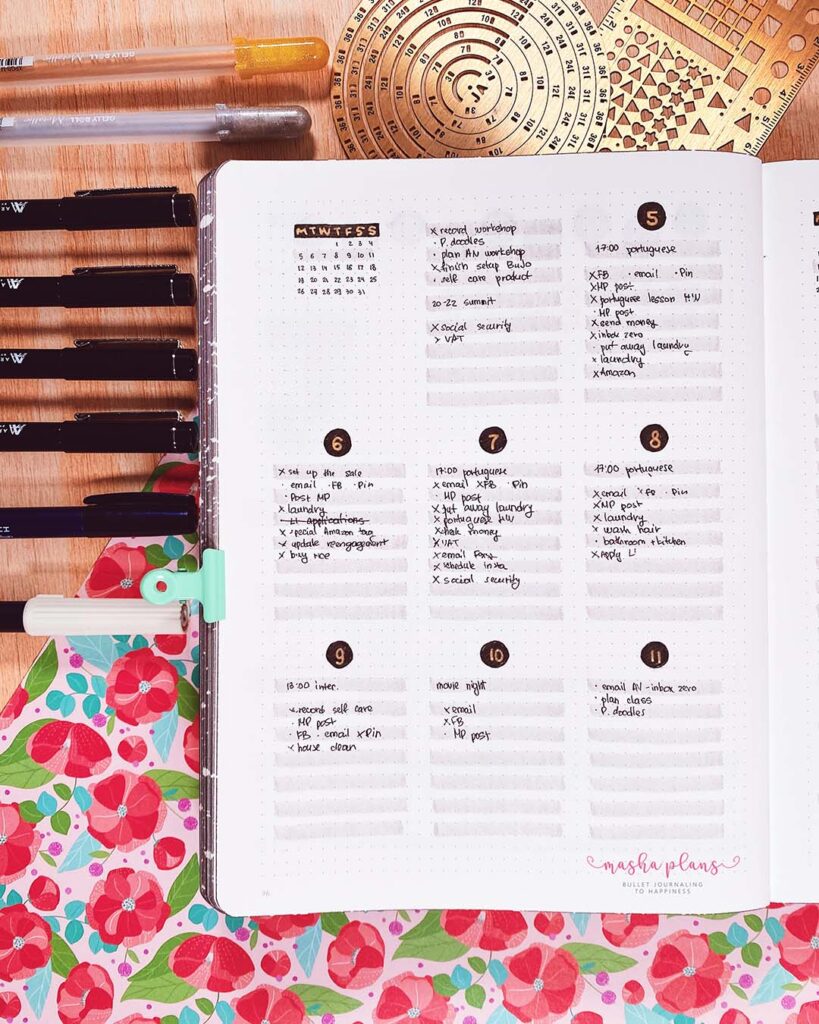 GELLY ROLL METALLIC
GELLY ROLL METALLIC
M T W T F S S
1 2 3 4
5 6 7 8 9 10 11
12 13 14 15 16 17 18
19 20 21 22 23 24 25
26 27 28 29 30 31
x record workshop
· P. doodles
· plan AN workshop
x finish setup BuJo
· self care product
20-22 summit
x social security
> VAT
5
17:00 portuguese
x FB · email · Pin
x MP post
x portuguese lesson HW
· MP post
x send money
x inbox zero
· put away laundry
x laundry
x Amazon
6
x set up the sale
· email · FB · Pin
· Post MP
x laundry
applications
x special Amazon tag
x update reengagement
x buy rice
7
17:00 portuguese
x email x FB · Pin
· MP post
x put away laundry
x portuguese HW
x money
x VAT
x email
x schedule insta
x social security
8
17:00 portuguese
x email x FB · Pin
x MP post
x laundry
x wash hair
· bathroom + kitchen
x Apply
9
inter.
x record self care
· MP post
· FB · email x Pin
x house clean
10
movie night
x email
x FB
· MP post
11
· email AV - inbox zero
· plan class
· P. doodles
masha plans
BULLET JOURNALING
TO HAPPINESS